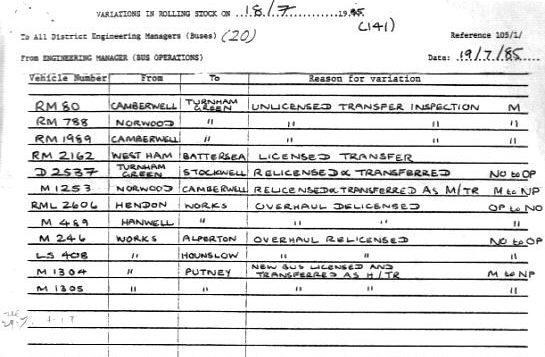 VARIATIONS IN ROLLING STOCK ON 18/7 1985
(141)
To All District Engineering Managers (Buses) (20) Reference 105/1/
From ENGINEERING MANAGER (BUS OPERATIONS) Date: 19/7/85
Vehicle Number From To Reason for variation
RM 80 CAMBERWELL TURNHAM GREEN UNLICENSED TRANSFER INSPECTION M
RM 788 NORWOOD " " " "
RM 1989 CAMBERWELL " " " "
RM 2162 WEST HAM BATTERSEA LICENSED TRANSFER
D 2537 TURNHAM GREEN STOCKWELL RELICENSED & TRANSFERRED NO to OP
M 1253 NORWOOD CAMBERWELL RELICENSED & TRANSFERRED AS M/TR M to NP
RML 2606 HENDON WORKS OVERHAUL DELICENSED OP to NO
M 489 HANWELL " " " "
M 246 WORKS ALPERTON OVERHAUL RELICENSED NO to OP
LS 408 " HOUNSLOW " " "
M 1304 " PUTNEY NEW BUS LICENSED AND TRANSFERRED AS M/TR M to NP
M 1305 " " " " "